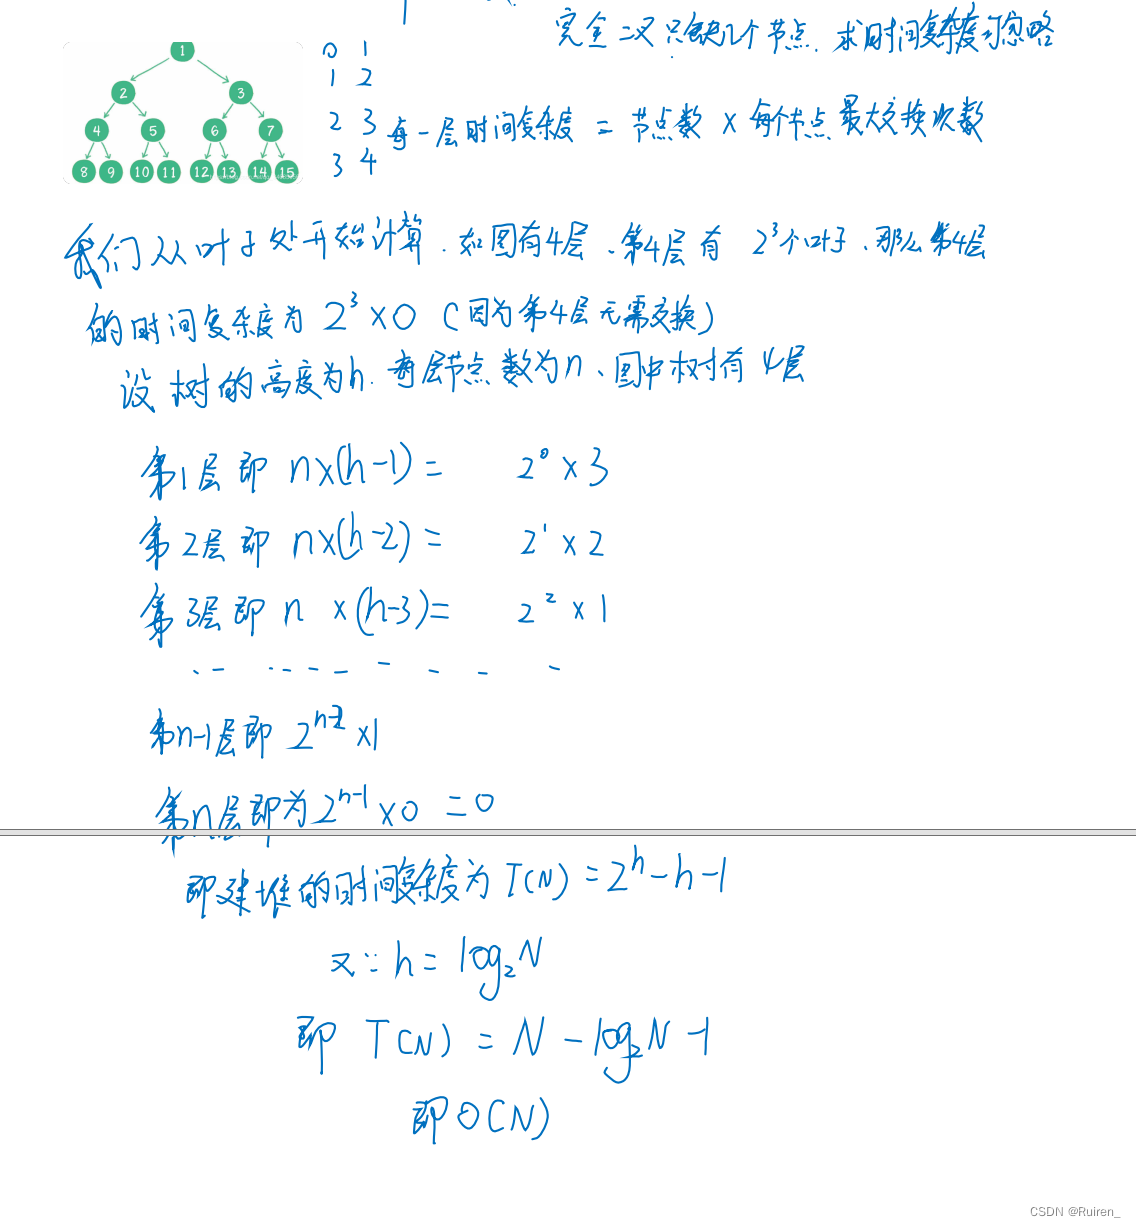 完全二叉只缺几个节点. 求时间复杂度可忽略
1
2 3
4 5 6 7
8 9 10 11 12 13 14 15
0 1
1 2
2 3
3 4
每一层时间复杂度 = 节点数 × 每个节点最大交换次数
我们从叶子处开始计算. 如图有4层、第4层有 2³个叶子、那么第4层
的时间复杂度为 2³×0 (因为第4层无需交换)
设树的高度为h. 每层节点数为n、图中树有4层
第1层即 n×(h-1) = 2⁰ × 3
第2层即 n×(h-2) = 2¹ × 2
第3层即 n ×(h-3) = 2² × 1
第n-1层即 2ⁿ⁻² ×1
第n层即为2ⁿ⁻¹ ×0 =0
即建堆的时间复杂度为 T(N) = 2ʰ - h - 1
又∵ h = log₂N
即 T(N) = N - log₂N - 1
即O(N)
CSDN @Ruiren_